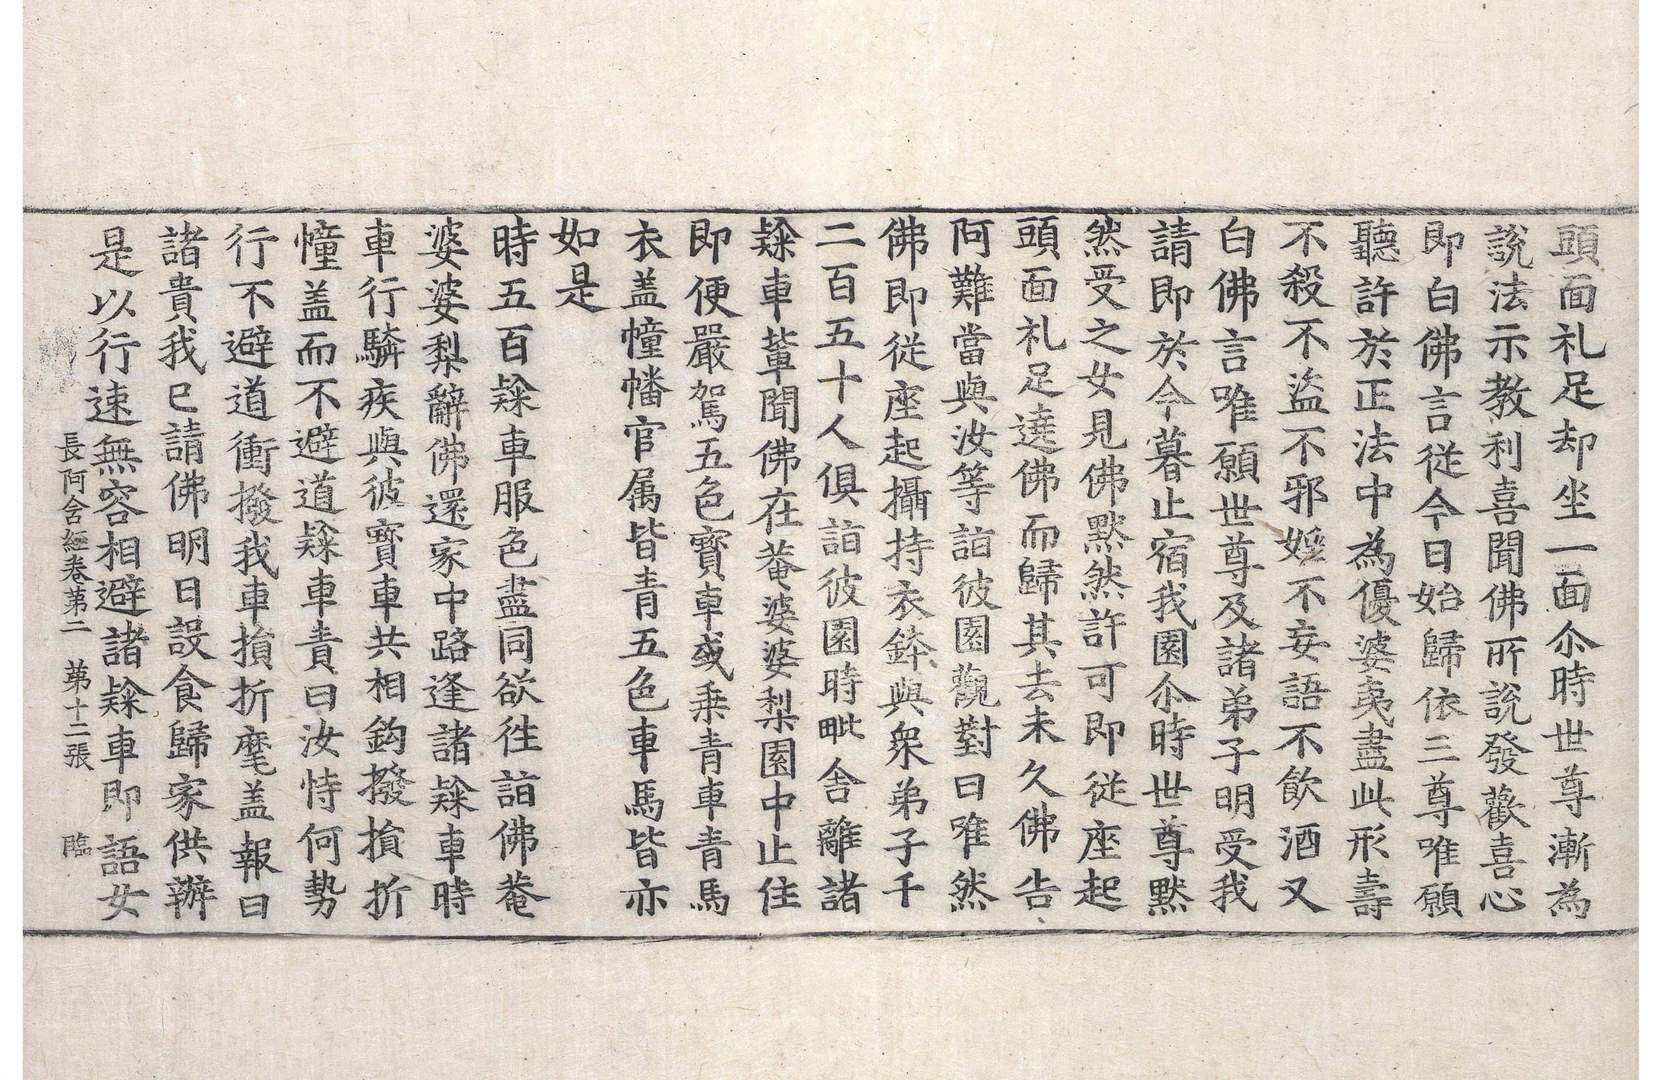 頭面礼足却坐一面尒時世尊漸為
說法示教利喜聞佛所說發歡喜心
即白佛言従今日始歸依三尊唯願
聽許於正法中為優婆夷盡此形壽
不殺不盜不邪婬不妄語不飲酒又
白佛言唯願世尊及諸弟子明受我
請即於今暮止宿我園尒時世尊默
然受之女見佛默然許可即従座起
頭面礼足遶佛而歸其去未久佛告
阿難當與汝等詣彼園觀對曰唯然
佛即従座起攝持衣鉢與衆弟子千
二百五十人俱詣彼園時毗舍離諸
𨽻車輩聞佛在菴婆婆梨園中止住
即便嚴駕五色寶車或乗青車青馬
衣盖幢幡官属皆青五色車馬皆亦
如是
時五百𨽻車服色盡同欲徃詣佛菴
婆婆梨辭佛還家中路逢諸𨽻車時
車行驎疾與彼寶車共相鈎撥損折
幢盖而不避道𨽻車責曰汝恃何勢
行不避道衝撥我車損折麾盖報曰
諸貴我已請佛明日設食歸家供辦
是以行速無容相避諸𨽻車即語女
長阿含經卷第二　第十二張　臨